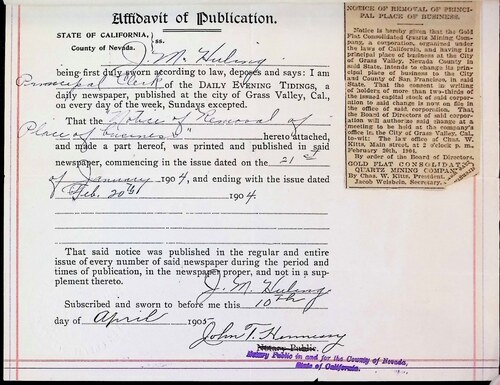 Affidavit of Publication.
STATE OF CALIFORNIA,
County of Nevada.
ss.
J. M. Huling
being first duly sworn according to law, deposes and says: I am
Principal Clerk of the DAILY EVENING TIDINGS, a
daily newspaper, published at the city of Grass Valley, Cal.,
on every day of the week, Sundays excepted.
That the "Notice of Removal of
Place of business" hereto attached,
and made a part hereof, was printed and published in said
newspaper, commencing in the issue dated on the 21st
of January 1904, and ending with the issue dated
Feb. 20th 1904.
That said notice was published in the regular and entire
issue of every number of said newspaper during the period and
times of publication, in the newspaper proper, and not in a sup-
plement thereto.
J. M. Huling
Subscribed and sworn to before me this 10th
day of April 1905
John T. Hennessy
Notary Public.
Notary Public in and for the County of Nevada,
State of California.
NOTICE OF REMOVAL OF PRINCI-
PAL PLACE OF BUSINESS.
Notice is hereby given that the Gold
Flat Consolidated Quartz Mining Com-
pany, a corporation, organized under
the laws of California, and having its
principal place of business at the City
of Grass Valley, Nevada County in
said State, intends to change its prin-
cipal place of business to the City
and County of San Francisco, in said
State. That the consent in writing
of holders of more than two-thirds of
the issued capital stock of said corpor-
ation to said change is now on file in
the office of said corporation. That
the Board of Directors of said corpor-
ation will authorize said change at a
meeting to be held at the company's
office in the City of Grass Valley, Cal.,
to-wit: The law office of Chas. W.
Kitts, Main street, at 2 o'clock p. m.,
February 26th, 1904.
By order of the Board of Directors.
GOLD FLAT CONSOLIDATED
QUARTZ MINING COMPANY
By Chas. W. Kitts, President.
Jacob Weisbein, Secretary.